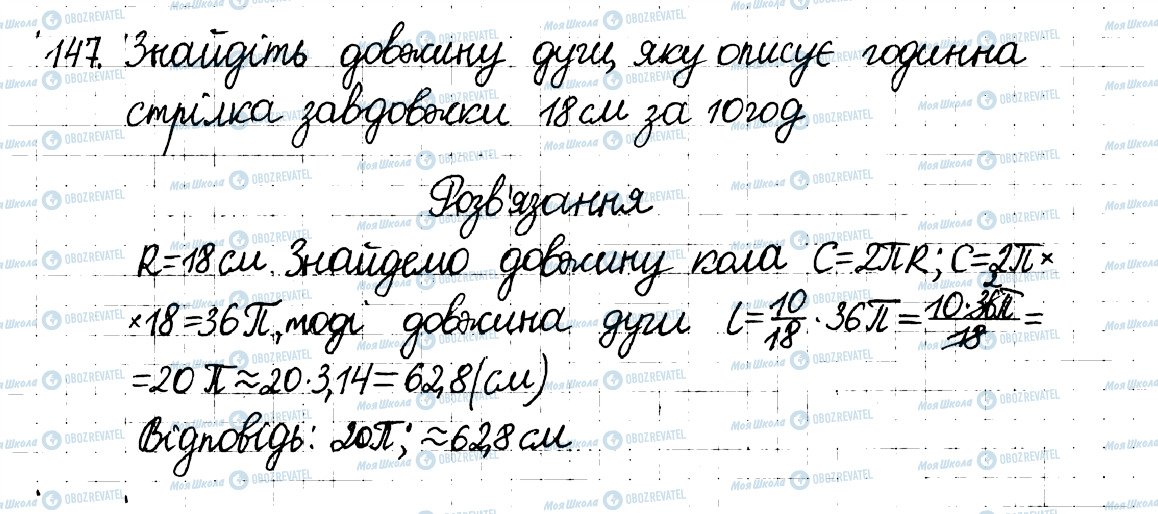 147. Знайдіть довжину дуги, яку описує годинна
стрілка завдовжки 18 см за 10 год
Розв'язання
R=18 см. Знайдемо довжину кола C=2πR; C=2π×
×18=36π, тоді довжина дуги l=10/18·36π=10·36π/18=
=20π≈20·3,14=62,8(см)
Відповідь: 20π; ≈62,8 см